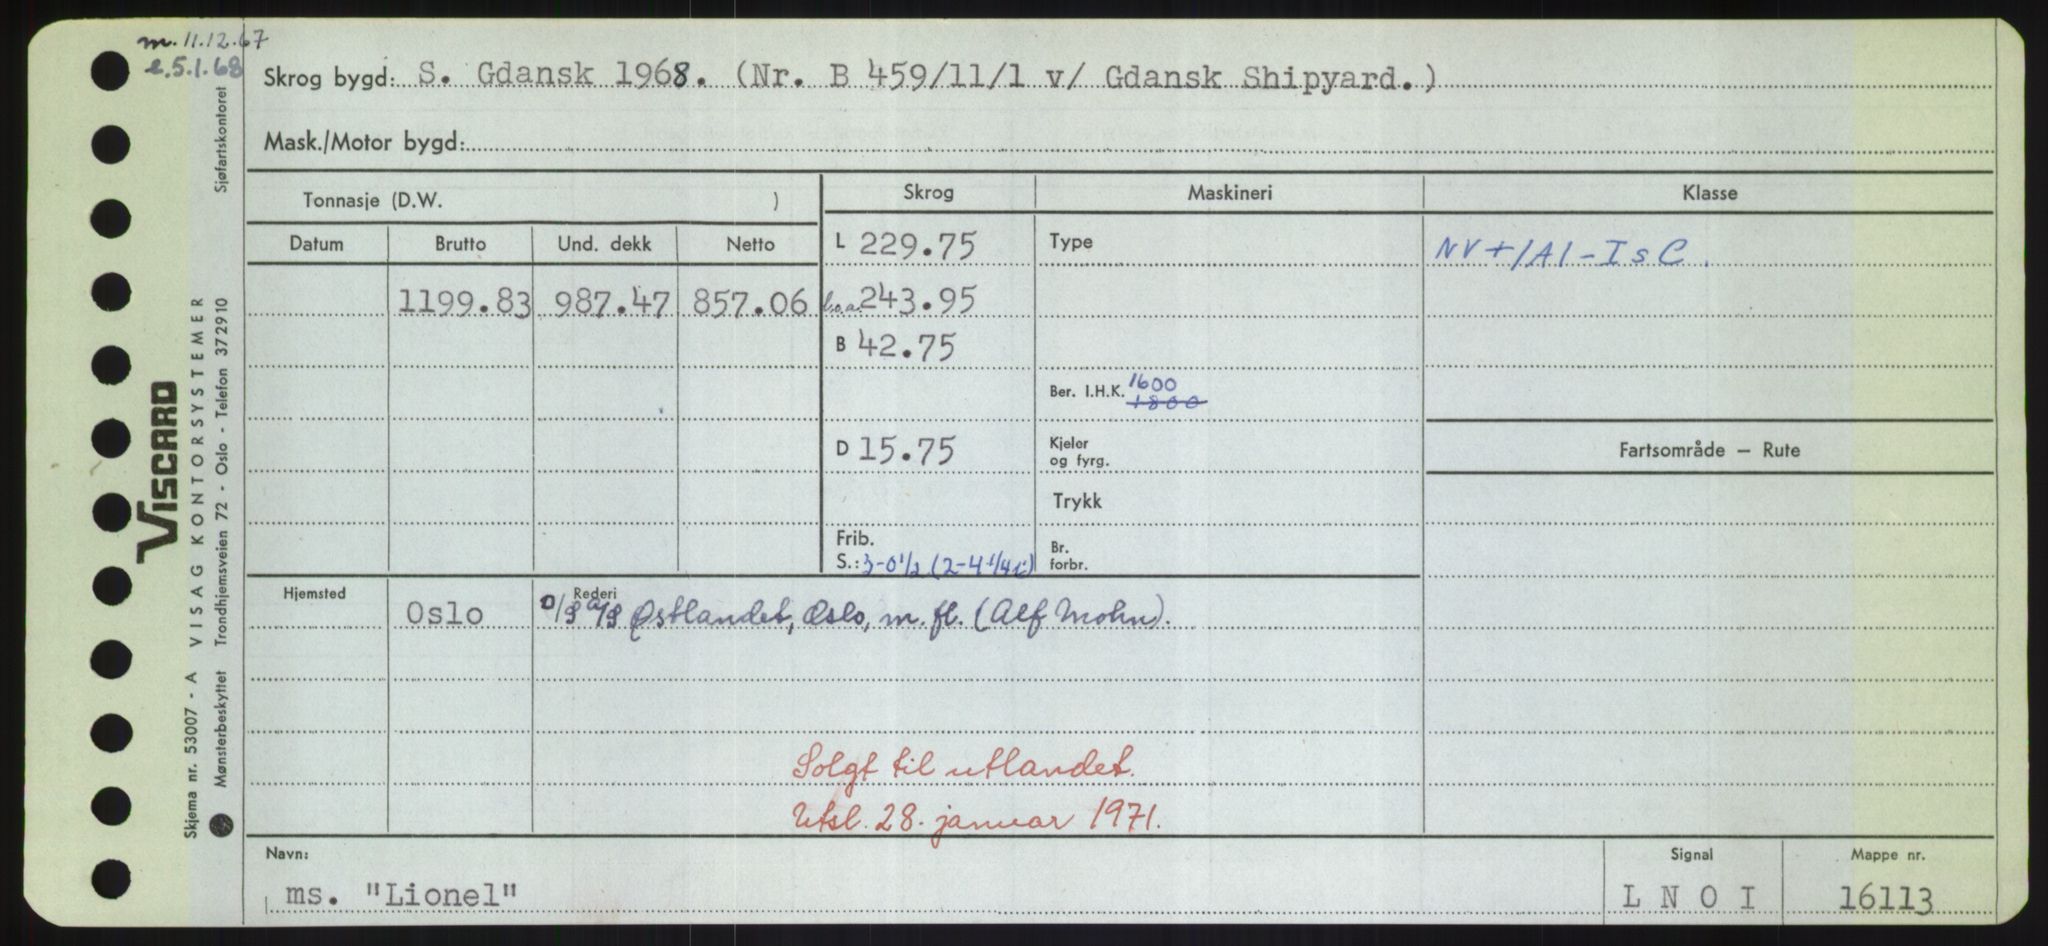 m. 11.12.67
e. 5.1.68
Skrog bygd: S. Gdansk 1968. (Nr. B 459/11/1 v/ Gdansk Shipyard.)
Mask./Motor bygd:
Tonnasje (D.W. )
Skrog
Maskineri
Klasse
Datum
Brutto
Und. dekk
Netto
L 229.75
Type
NV +1A1-IsC.
1199.83
987.47
857.06
l.o.a. 243.95
B 42.75
Ber. I.H.K. 1600
1800
D 15.75
Kjeler
og fyrg.
Fartsområde — Rute
Trykk
Frib.
S.: 3-0 1/2 (2-4 1/4
Br.
forbr.
Hjemsted
Oslo
Rederi
D/S A/S Østlandet, Oslo, m. fl. (Alf Mohn).
Solgt til utlandet.
Utsl. 28. januar 1971.
Navn:
ms. "Lionel"
Signal
L N O I
Mappe nr.
16113
VISCARD
Skjema nr. 53007 - A VISAG KONTORSYSTEMER
Mønsterbeskyttet Trondhjemsveien 72 - Oslo - Telefon 372910 Sjøfartskontoret